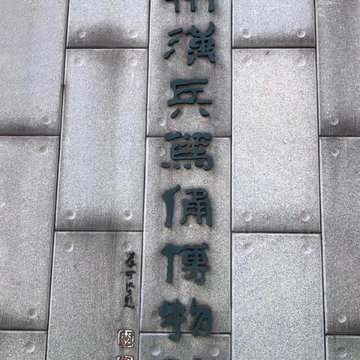 州漢兵馬俑博物